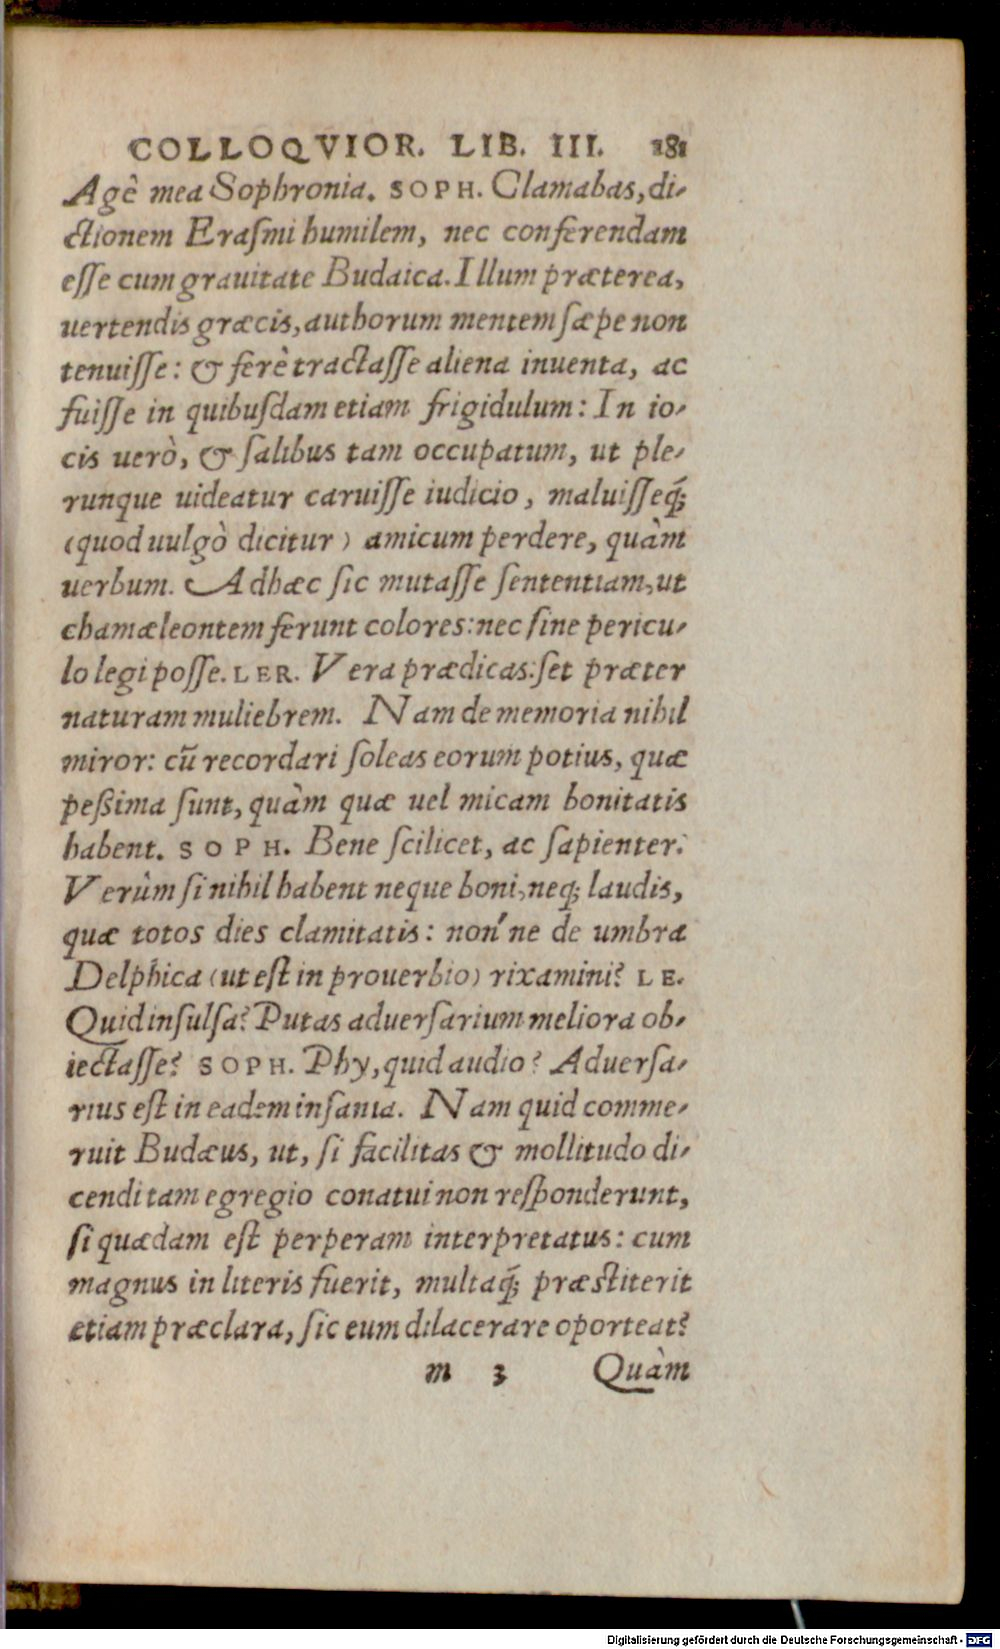 COLLOQVIOR. LIB. III. 181
Agè mea Sophronia. SOPH. Clamabas, di-
ctionem Eraſmi humilem, nec conferendam
eſſe cum grauitate Budaica. Illum præterea,
uertendis græcis, authorum mentem ſæpe non
tenuiſſe: & ferè tractaſſe aliena inuenta, ac
fuiſſe in quibuſdam etiam frigidulum: In io-
cis uerò, & ſalibus tam occupatum, ut ple-
runque uideatur caruiſſe iudicio, maluiſſeq́;
(quod uulgò dicitur) amicum perdere, quàm
uerbum. Adhæc ſic mutaſſe ſententiam, ut
chamæleontem ferunt colores: nec ſine pericu-
lo legi poſſe. LER. Vera prædicas: ſet præter
naturam muliebrem. Nam de memoria nihil
miror: cũ recordari ſoleas eorum potius, quæ
peßima ſunt, quàm quæ uel micam bonitatis
habent. SOPH. Bene ſcilicet, ac ſapienter.
Verùm ſi nihil habent neque boni, neq; laudis,
quæ totos dies clamitatis: non´ne de umbra
Delphica (ut eſt in prouerbio) rixamini? LE.
Quid inſulſa? Putas aduerſarium meliora ob-
iectaſſe? SOPH. Phy, quid audio? Aduerſa-
rius eſt in eadem inſania. Nam quid comme-
ruit Budæus, ut, ſi facilitas & mollitudo di-
cendi tam egregio conatui non reſponderunt,
ſi quædam eſt perperam interpretatus: cum
magnus in literis fuerit, multaq́; præſtiterit
etiam præclara, ſic eum dilacerare oporteat?
m 3 Quàm
Digitalisierung gefördert durch die Deutsche Forschungsgemeinschaft - DFG